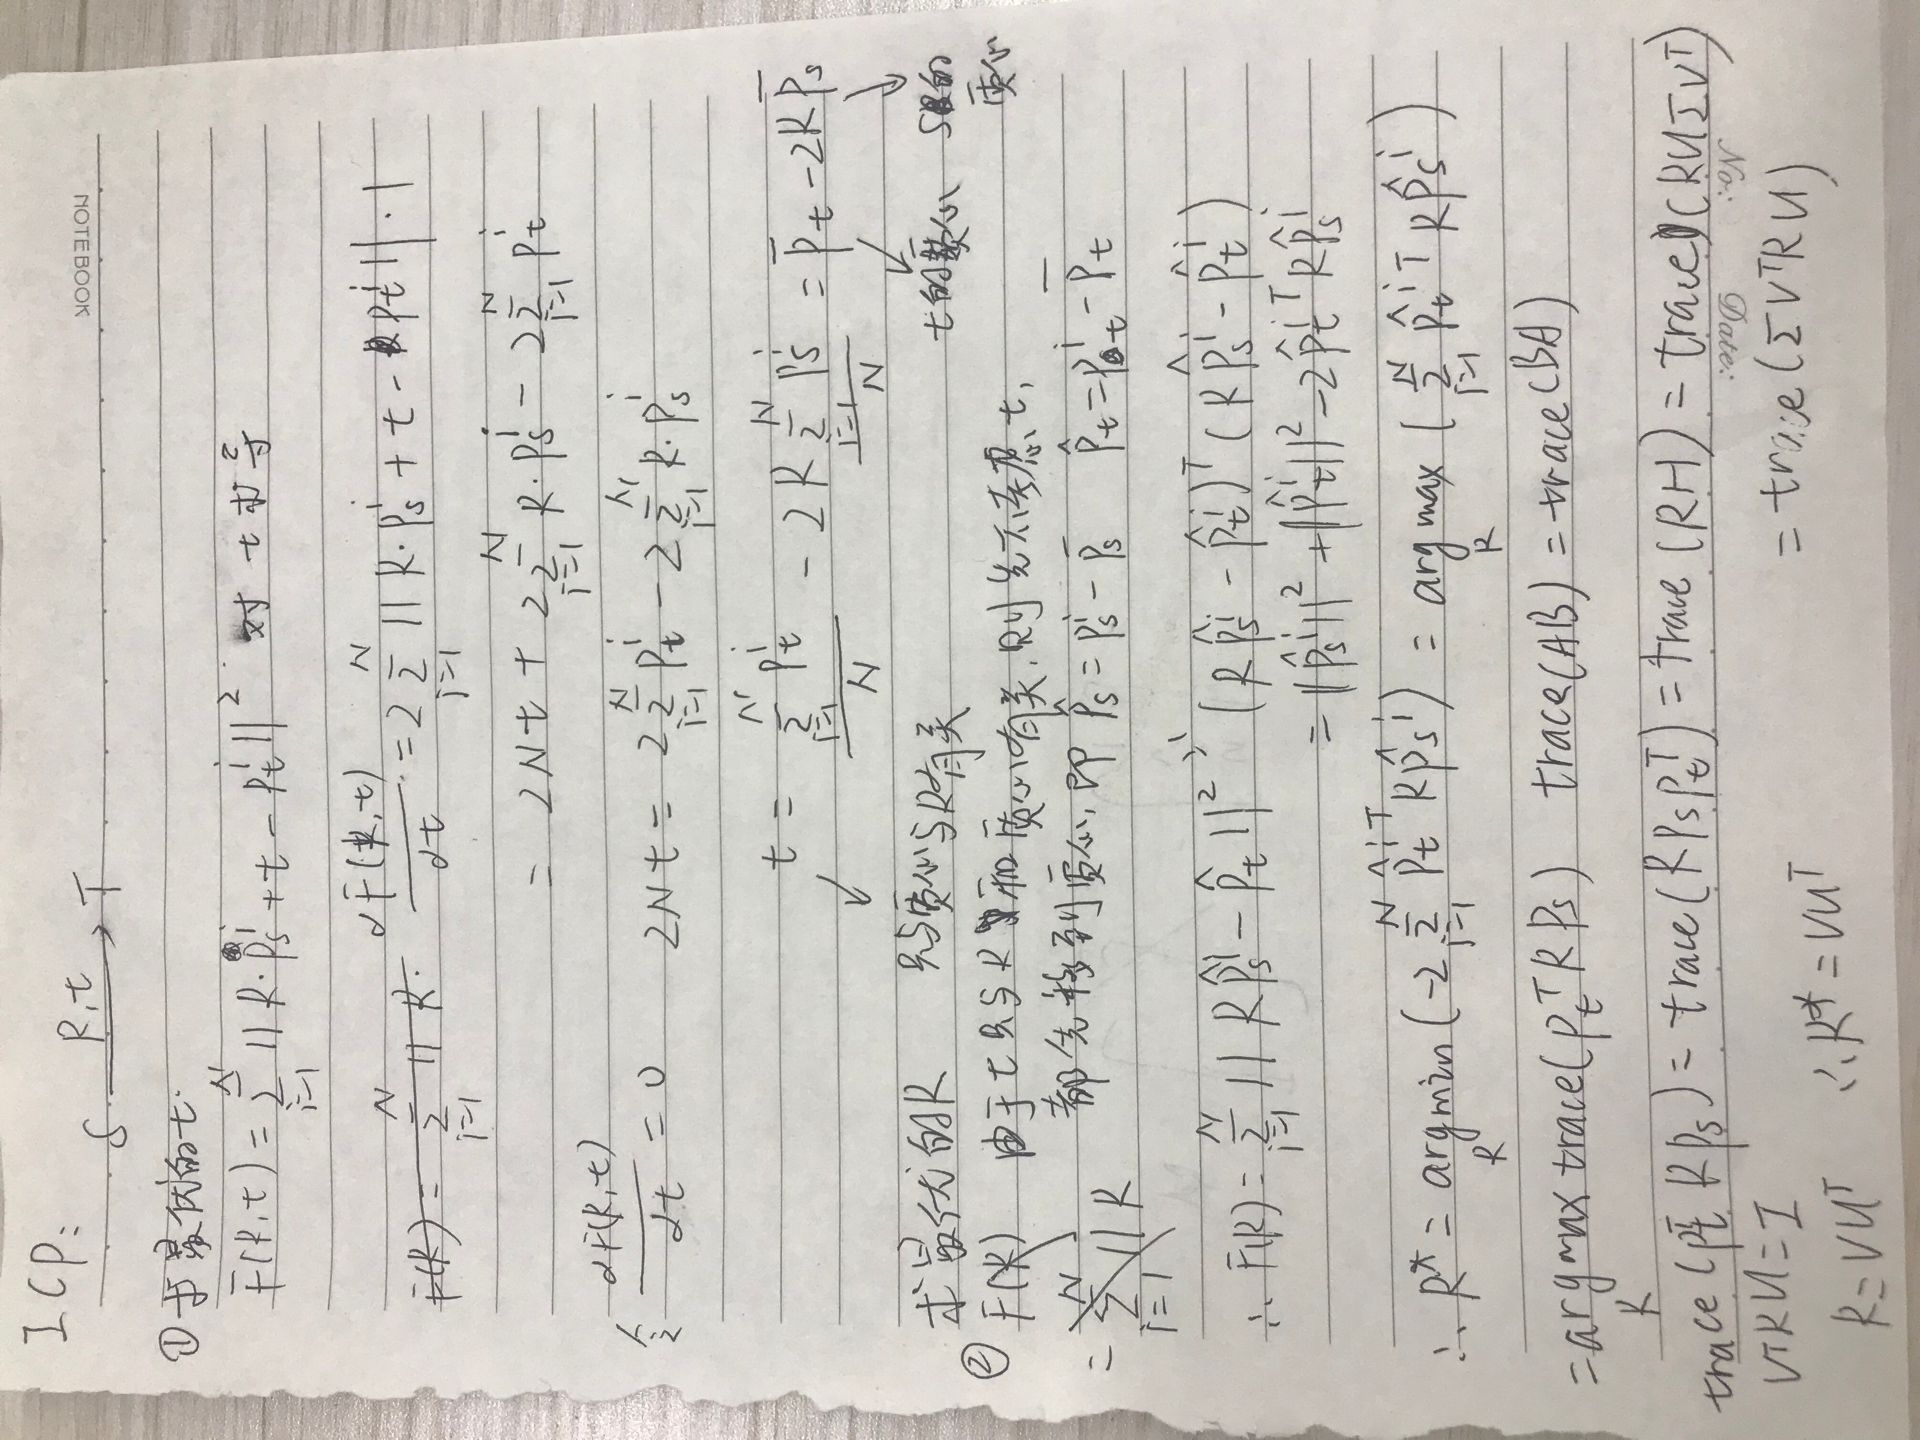 ICP:
NOTEBOOK
S —R,t→ T
① 求最优的t.
F(R,t) = Σ_{i=1}^{N} ||R·p_s^i + t - p_t^i||² 对 t 求导
F(R) = Σ_{i=1}^{N} ||R· dF(R,t)/dt = 2Σ_{i=1}^{N} ||R·p_s^i + t - p_t^i||·1
= 2Nt + 2Σ_{i=1}^{N} R·p_s^i - 2Σ_{i=1}^{N} p_t^i
令 dF(R,t)/dt = 0 2Nt = 2Σ_{i=1}^{N} p_t^i - 2Σ_{i=1}^{N} R·p_s^i
t = Σ_{i=1}^{N} p_t^i / N - 2RΣ_{i=1}^{N} p_s^i / N = p̄_t - 2R p̄_s
↙ ↙ ↘
求最优的R 只与质心与R有关 t的质心 S的
质心
② F(R) 由于t只与R和质心有关,则先不考虑t,
= Σ_{i=1}^{N} ||R 都先移到质心,即 p̂_s = p_s^i - p̄_s p̂_t = p_t^i - p̄_t
∴ F(R) = Σ_{i=1}^{N} ||R p̂_s^i - p̂_t||² (R p̂_s^i - p̂_t^i)^T (R p̂_s^i - p̂_t^i)
= ||p̂_s^i||² + ||p̂_t^i||² - 2p̂_t^{iT} R p̂_s^i
∴ R* = argmin_R (-2Σ_{i=1}^{N} p̂_t^{iT} R p̂_s^i) = argmax_R (Σ_{i=1}^{N} p̂_t^{iT} R p̂_s^i)
= argmax_R trace(p_t^T R p_s) trace(AB) = trace(BA)
trace(p_t^T R p_s) = trace(R p_s p_t^T) = trace(RH) = trace(RUΣV^T)
Date: No:
V^T R U = I = trace(ΣV^T R U)
R = VU^T ∴ R* = VU^T